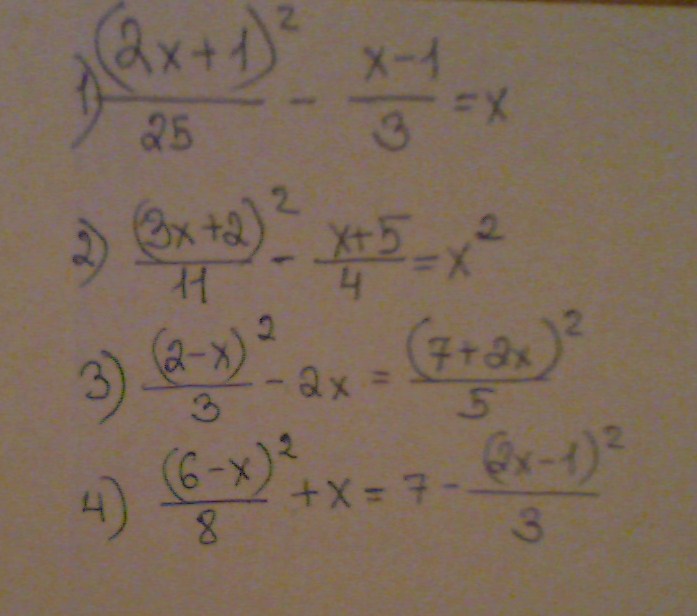 1) (2x+1)²/25 - (x-1)/3 = x
2) (3x+2)²/11 - (x+5)/4 = x²
3) (2-x)²/3 - 2x = (7+2x)²/5
4) (6-x)²/8 + x = 7 - (2x-1)²/3